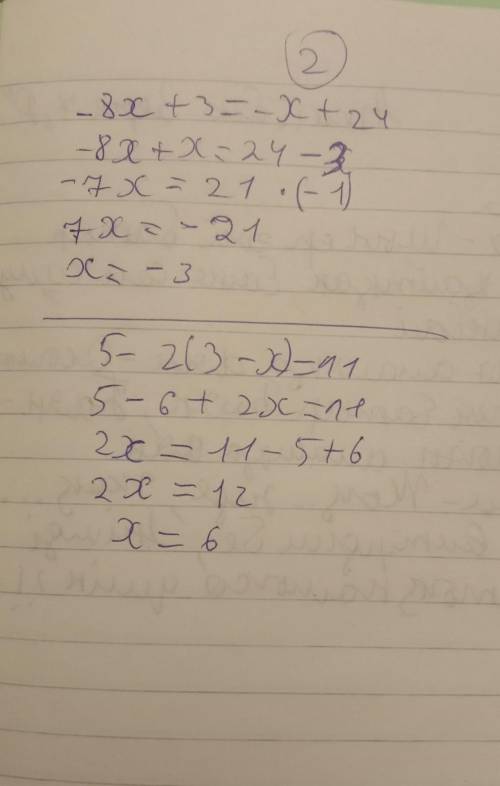 2
-8x + 3 = -x + 24
-8x + x = 24 - 3
-7x = 21 · (-1)
7x = -21
x = -3
5 - 2(3 - x) = 11
5 - 6 + 2x = 11
2x = 11 - 5 + 6
2x = 12
x = 6